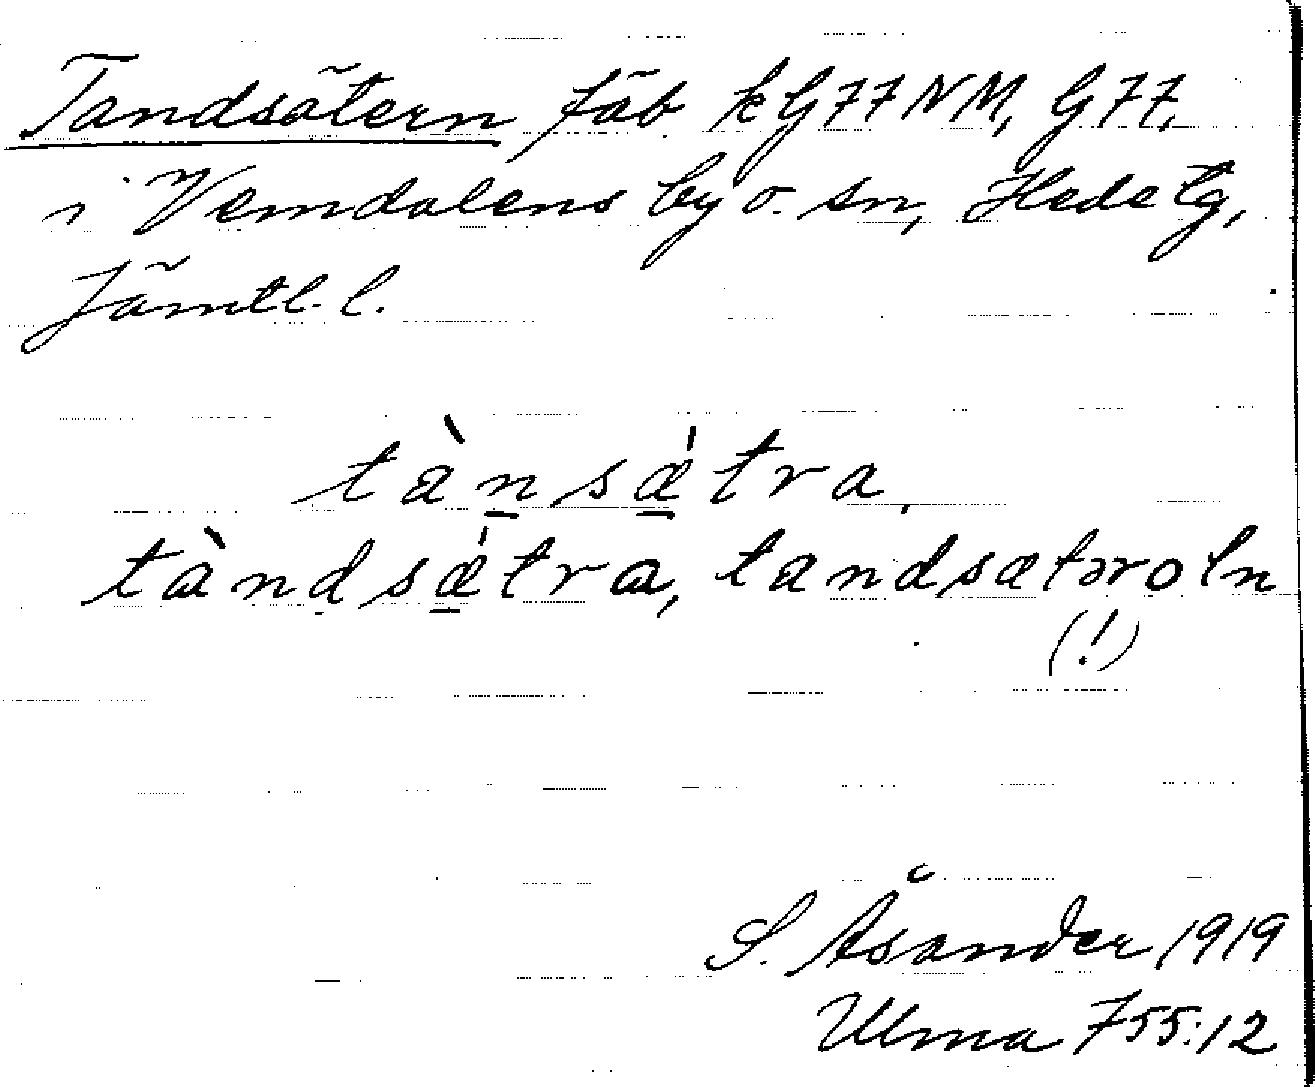 Tandsätern fäb. kG77NM, G77,
i Vemdalens by o. sn, Hede tg,
Jämtl. l.
tànsæ̀tra,
tàndsæ̀tra, tandsætəroln
(!)
S. Åsander 1919
Ulma 755:12